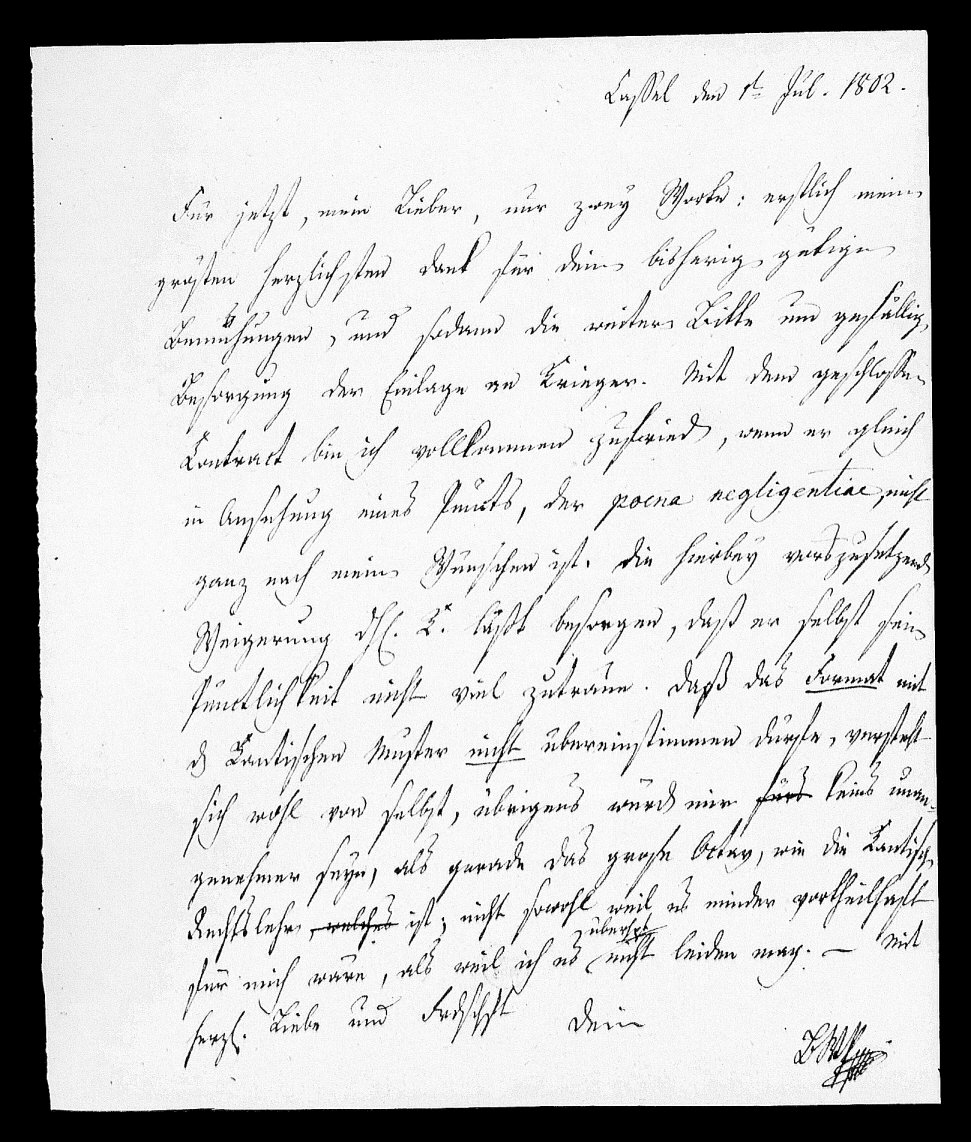 Cassel den 1t Jul. 1802.
Für jetzt, mein Lieber, nur zwey Worte: erstlich meinen
grösten herzlichsten Dank für deine bisherige gütige
Bemühungen, und sodann die weitere Bitte um gefällige
Besorgung der Einlage an Krieger. Mit dem geschlossenen
Contract bin ich vollkommen zufrieden, wenn er gleich
in Ansehung eines Puncts, der poena negligentiae, nicht
ganz nach meinen Wünschen ist. Die hierbey vorauszusetzende
Weigerung K. läßt besorgen, daß er selbst seiner
Punctlichkeit nicht viel zutraue. Daß das Format mit
d Kantischen Muster nicht übereinstimmen dürfte, versteht
sich wohl von selbst, übrigens würde mir fürs keins unan-
genehmer seyn, als gerade das große Octav, wie die Kantische
Rechtslehre, welches ist; nicht sowohl weil es minder vortheilhaft
für mich wäre, als weil ich es überhpt nicht leiden mag. – Mit
herzl. Liebe und Frdschft Dein